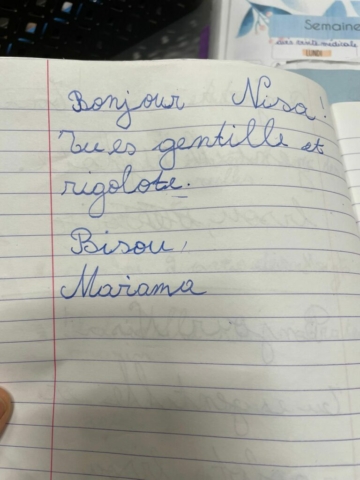 Semaine
LUNDI
Bonjour Nisa!
Tu es gentille et
rigolote.
Bisou,
Marama